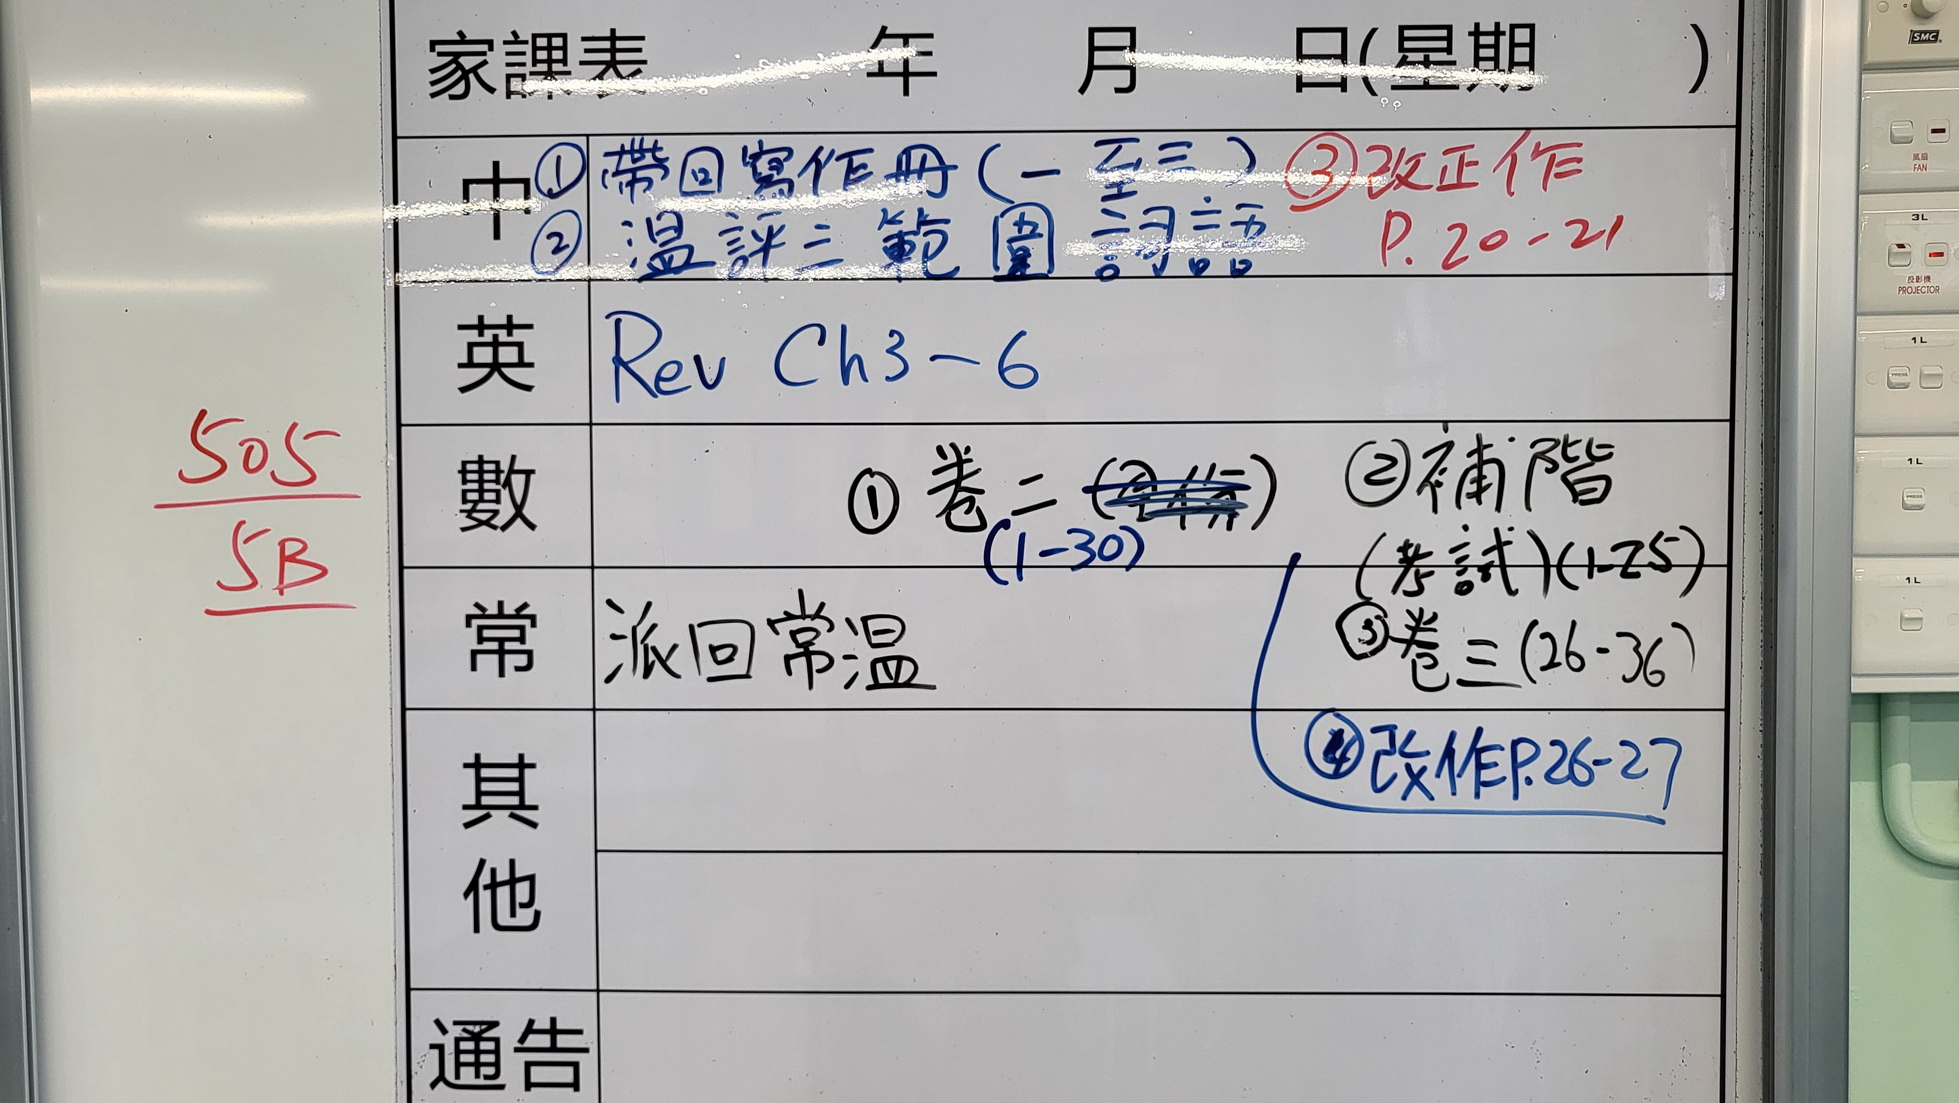 家課表 年 月 日(星期 )
中 ①帶回寫作冊(一至三) ③改正作
②溫評三範圍詞語 P.20-21
英 Rev Ch3~6
505
5B
數 ①卷二 ②補階
(1-30) (考試)(1-25)
③卷三(26-36)
④改作P.26-27
常 派回常溫
其他
通告
SMC
風扇
FAN
3L
投影機
PROJECTOR
1L
1L
1L